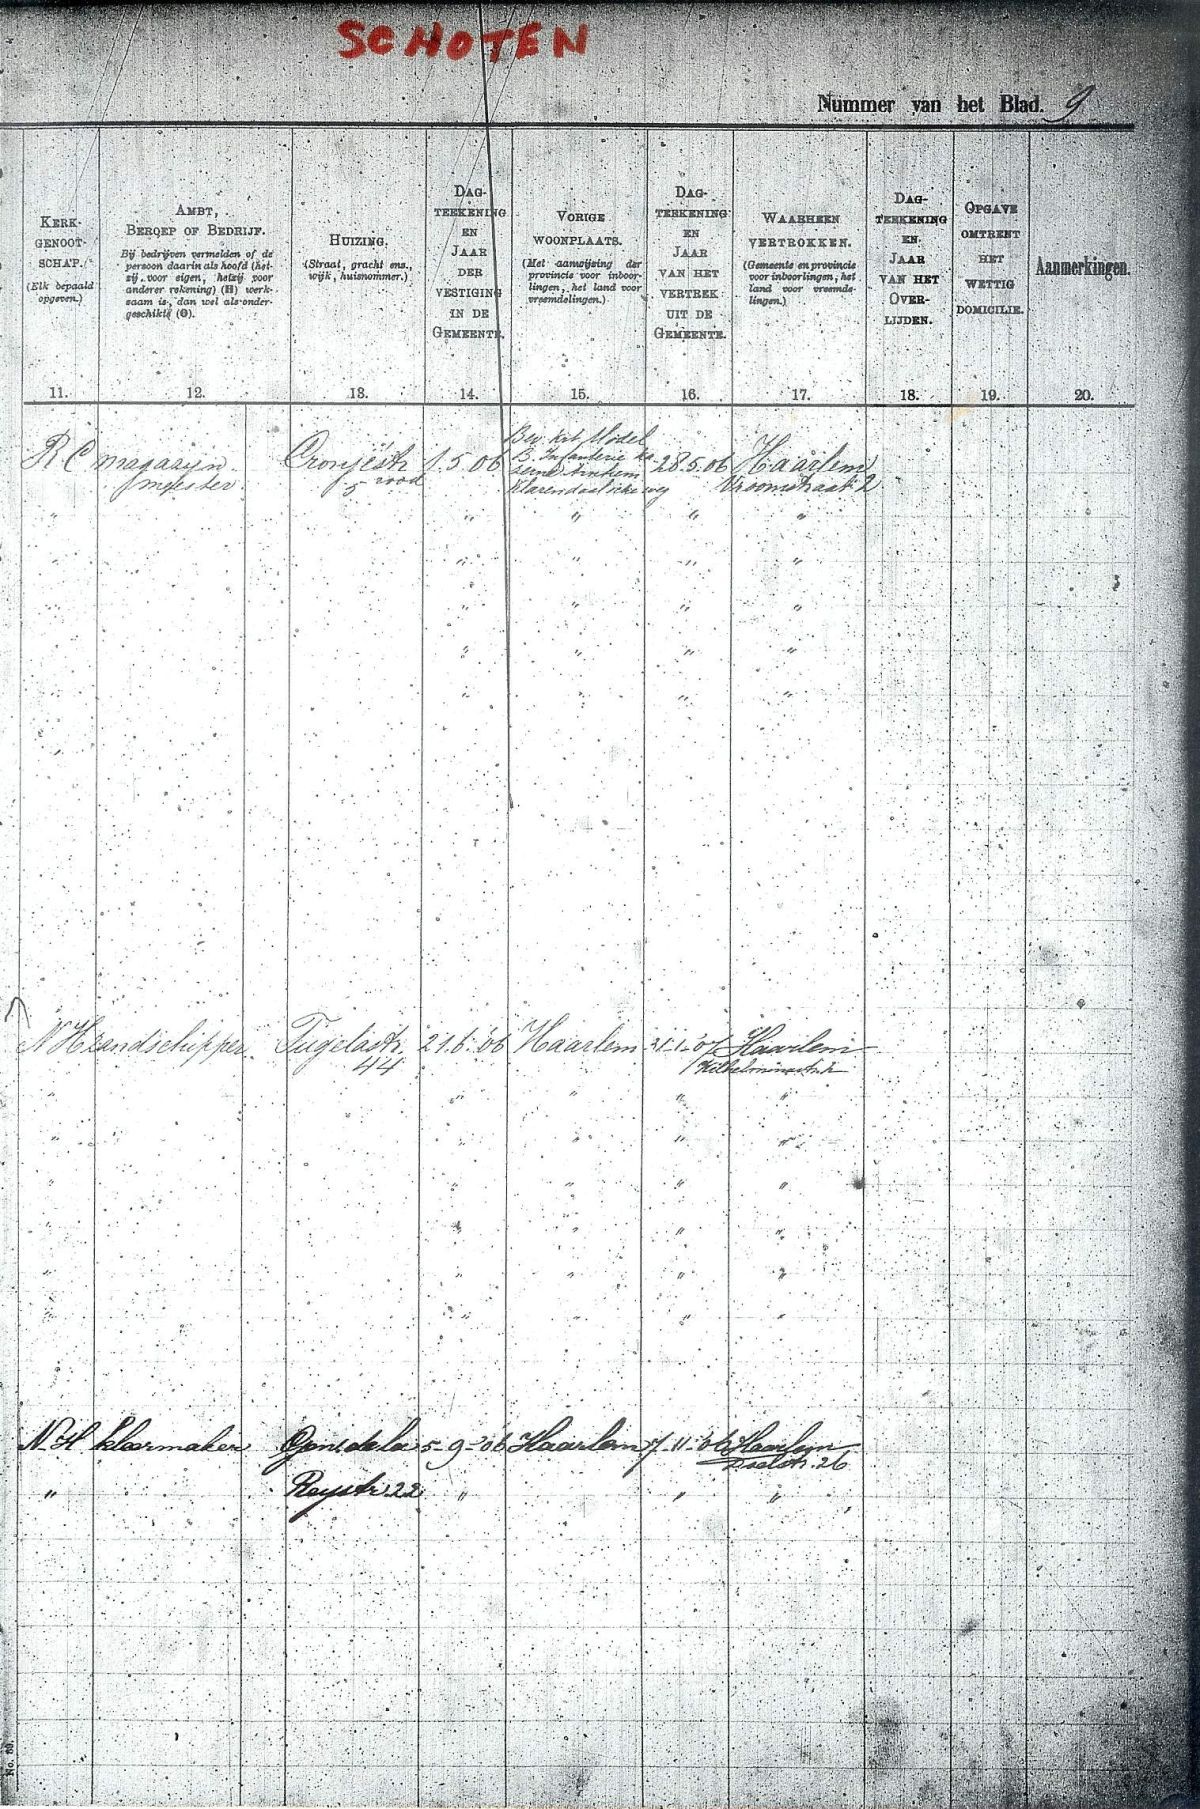 SCHOTEN
Nummer van het Blad. 9
KERK-
GENOOT-
SCHAP.
(Elk bepaald
opgeven.)
11.
AMBT,
BEROEP OF BEDRIJF.
Bij bedrijven vermelden of de
persoon daarin als hoofd (het-
zij voor eigen, hetzij voor
anderer rekening) (H) werk-
zaam is, dan wel als onder-
geschikte (O).
12.
HUIZING.
(Straat, gracht enz.,
wijk, huisnommer.)
13.
DAG-
TEEKENING
EN
JAAR
DER
VESTIGING
IN DE
GEMEENTE.
14.
VORIGE
WOONPLAATS.
(Met aanwijzing der
provincie voor inboor-
lingen, het land voor
vreemdelingen.)
15.
DAG-
TEEKENING
EN
JAAR
VAN HET
VERTREK
UIT DE
GEMEENTE.
16.
WAARHEEN
VERTROKKEN.
(Gemeente en provincie
voor inboorlingen, het
land voor vreemde-
lingen.)
17.
DAG-
TEEKENING
EN
JAAR
VAN HET
OVER-
LIJDEN.
18.
OPGAVE
OMTRENT
HET
WETTIG
DOMICILIE.
19.
Aanmerkingen.
20.
R C
magazijn
meester
Cronjéstr
5 rood
1.5.06
B. Infanterie ka
serne Arnhem
28.5.06
Haarlem
Vroomstraat 2
" " " " "
" " " "
" " " "
" " " "
" " " "
N H
zandschipper
Tugelastr.
44
21.6.'06
Haarlem
21-1-'07
Haarlem
Wilhelminastr.
" " " " "
" " " " "
" " " " "
" " " " "
" " " " "
" " " " "
N. H
kleermaker
Gen. de la
5-9-'06
Haarlem
7-11-'06
Haarlem
26
"
Reystr. 22
" " "
No. 69.